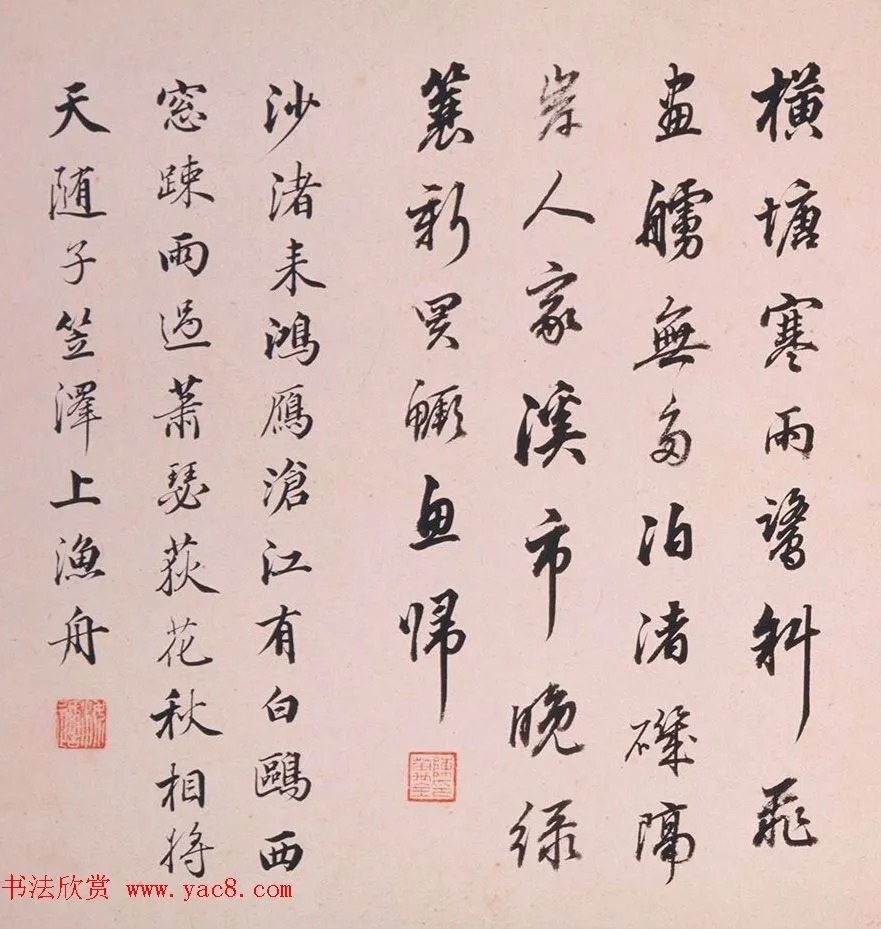 橫塘寒雨鷺斜飛
畫艣無多泊渚磯隔
岸人家溪市晚綠
蓑新買鱖魚歸
沙渚来鴻雁滄江有白鷗西
窓踈雨過蕭瑟荻花秋相將
天随子笠澤上漁舟
书法欣赏 www.yac8.com